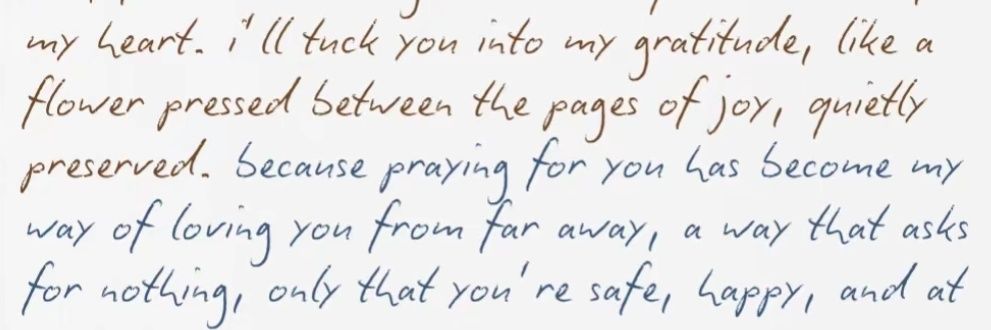 my heart. i'll tuck you into my gratitude, like a
flower pressed between the pages of joy, quietly
preserved. because praying for you has become my
way of loving you from far away, a way that asks
for nothing, only that you're safe, happy, and at